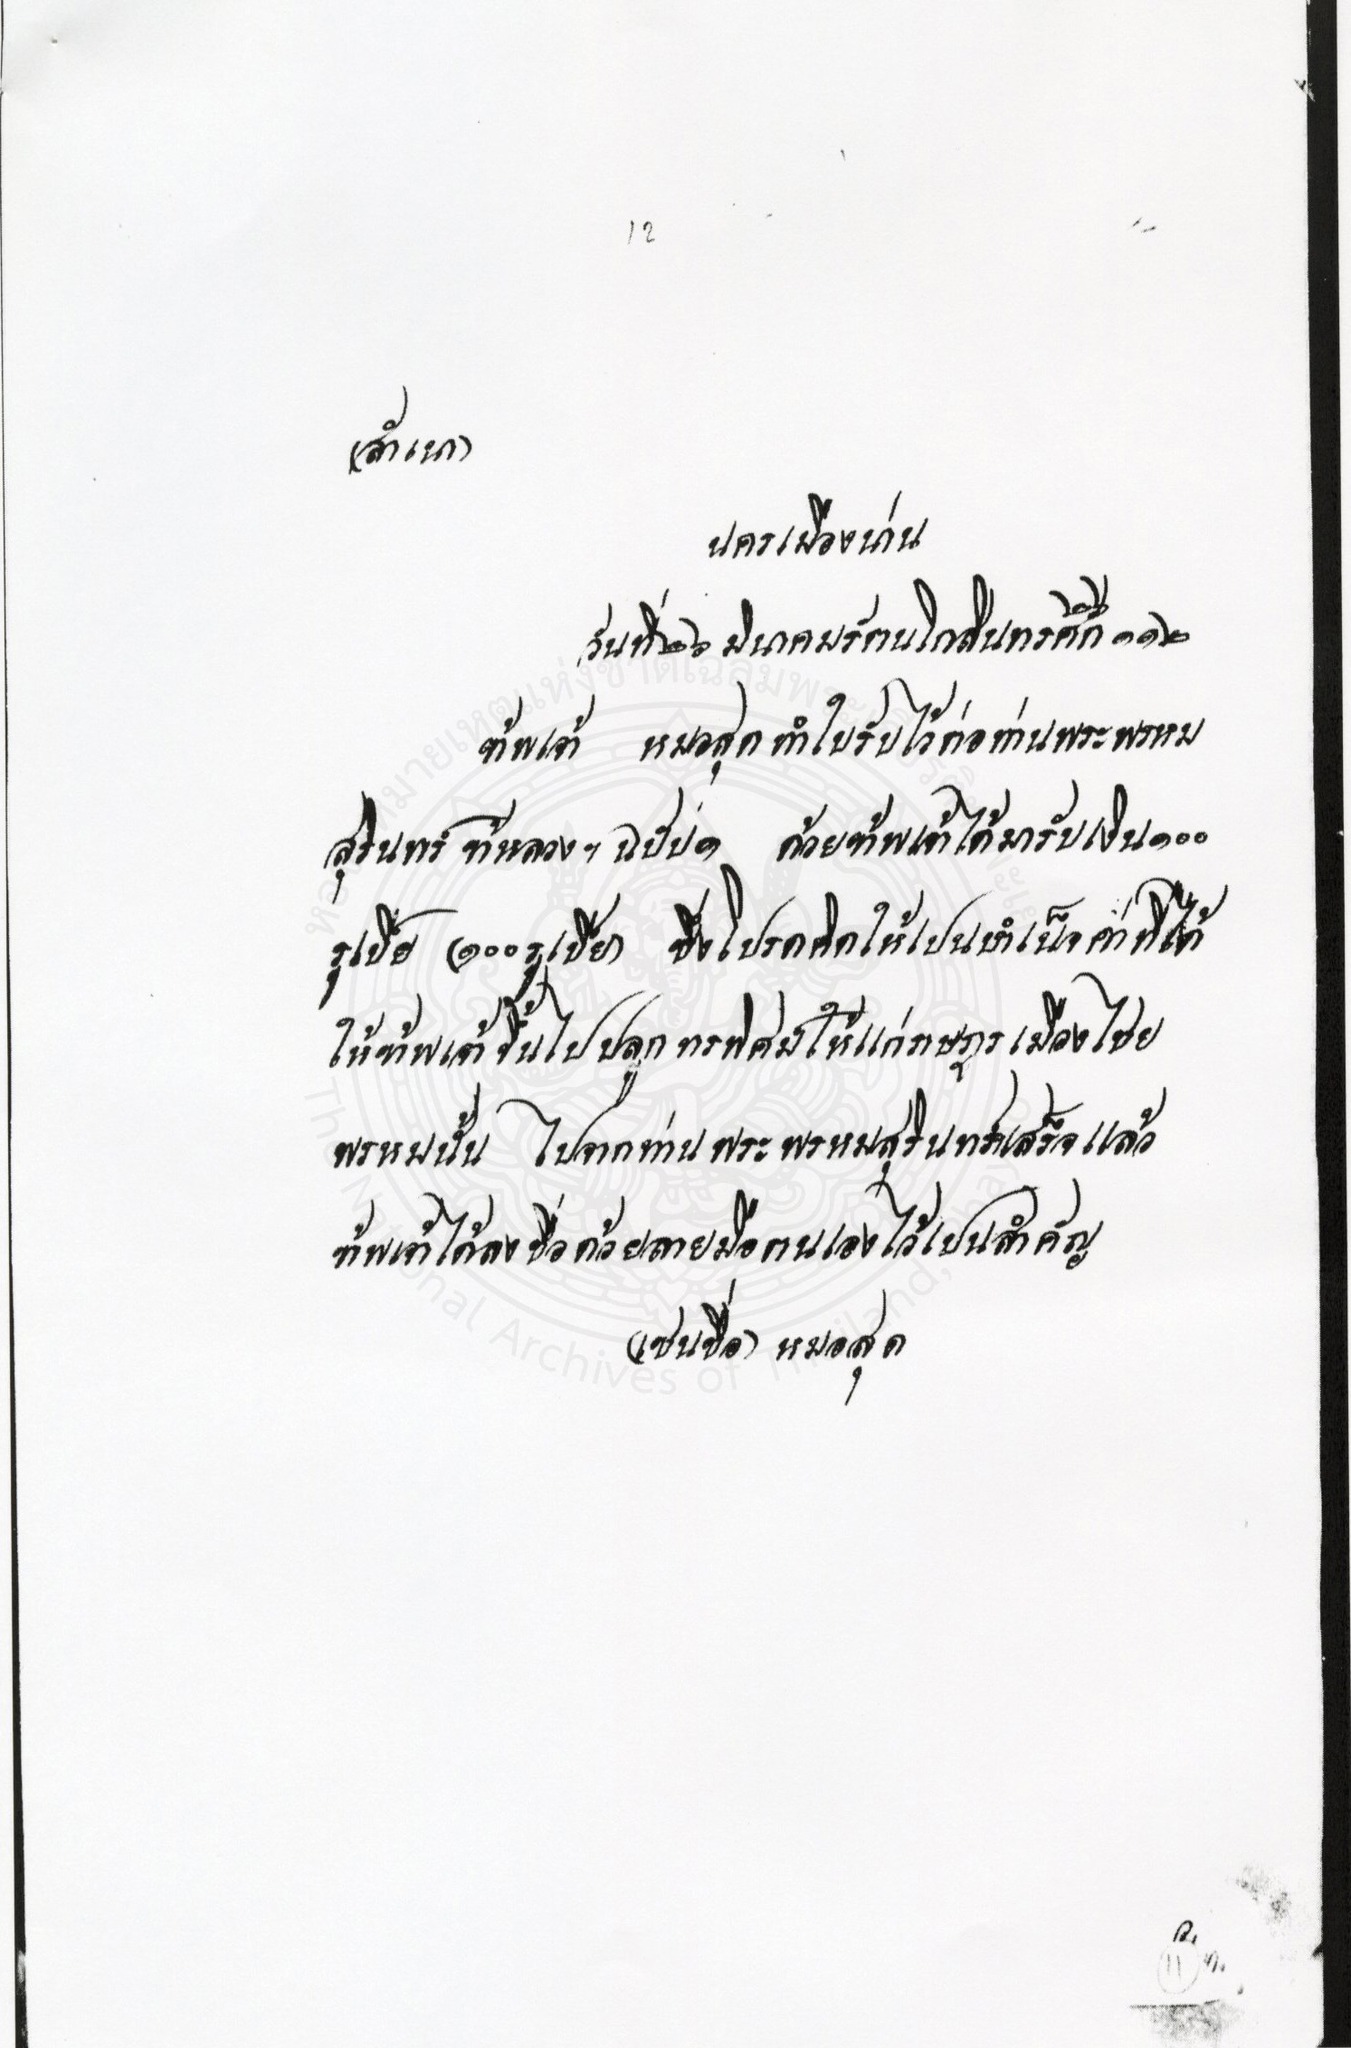 12
(สำเนา)
นครเมืองน่าน
วันที่ ๒๖ มีนาคม รัตนโกสินทรศักดิ์ ๑๑๒
ข้าพเจ้า หมอสุด ทำใบรับไว้ต่อท่านพระพรหม
สุรินทร์ ข้าหลวงฯ ฉบับ ๑ ด้วยข้าพเจ้าได้มารับเงิน ๑๐๐
รูเปีย (๑๐๐ รูเปีย) ซึ่งโปรดคิดให้เปนบำเน็จค่าที่ได้
ให้ข้าพเจ้าขึ้นไปปลูกทรพิศม์ให้แก่ราษฎรเมืองไชย
พรหมนั้น ไปจากท่านพระพรหมสุรินทร์เสร็จแล้ว
ข้าพเจ้าได้ลงชื่อด้วยลายมือตนเองไว้เปนสำคัญ
(เซนชื่อ) หมอสุด
หอจดหมายเหตุแห่งชาติเฉลิมพระเกียรติ
The National Archives of Thailand,
11